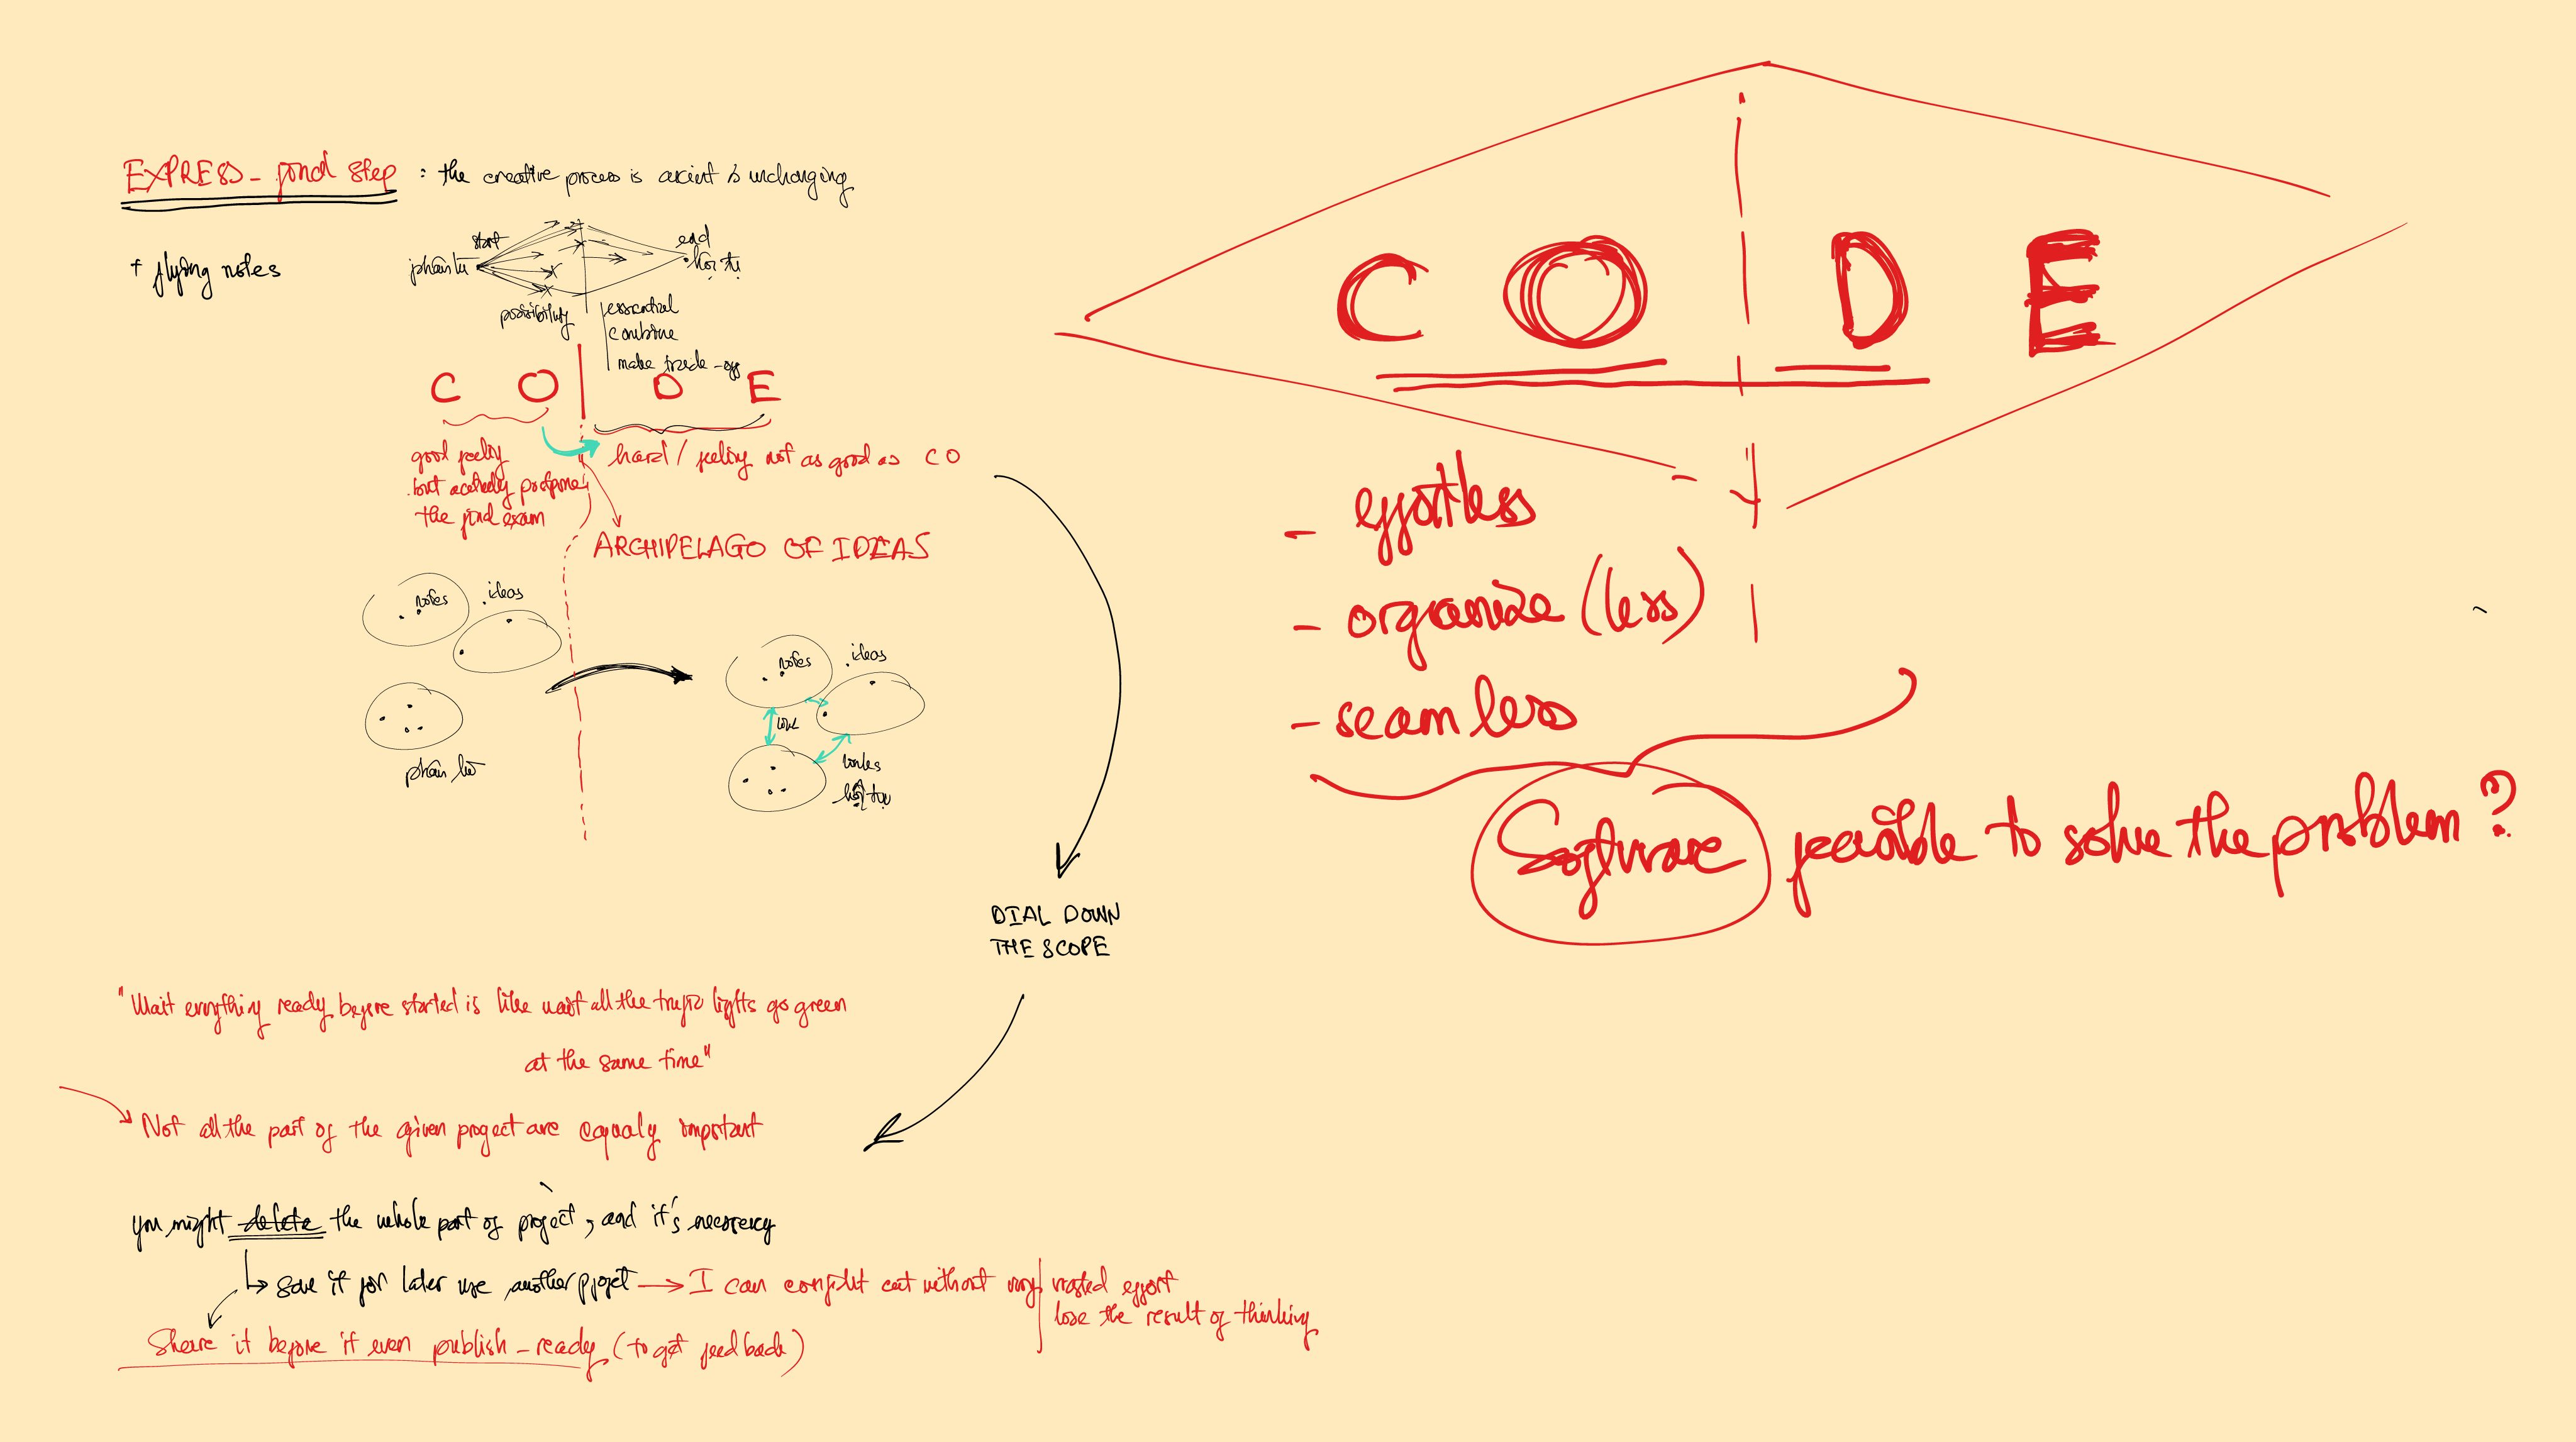 EXPRESS - final step : the creative process is ancient & unchanging
+ flying notes
start
phân kì
end
hội tụ
possibility
essential
combine
make trade-off
C O D E
good feeling
but actually postpone
the final exam
hard / feeling not as good as CO
ARCHIPELAGO OF IDEAS
notes
ideas
phân kì
notes
ideas
link
links
hội tụ
DIAL DOWN
THE SCOPE
"Wait everything ready before started is like wait all the traffic lights go green
at the same time"
Not all the part of the given project are equaly important
you might delete the whole part of project, and it's necessary
save it for later use, another project → I can confident cut without
wasted effort
lose the result of thinking
Share it before it even publish-ready (to get feedback)
C O D E
- effortless
- organize (less)
- seamless
Software feasible to solve the problem?